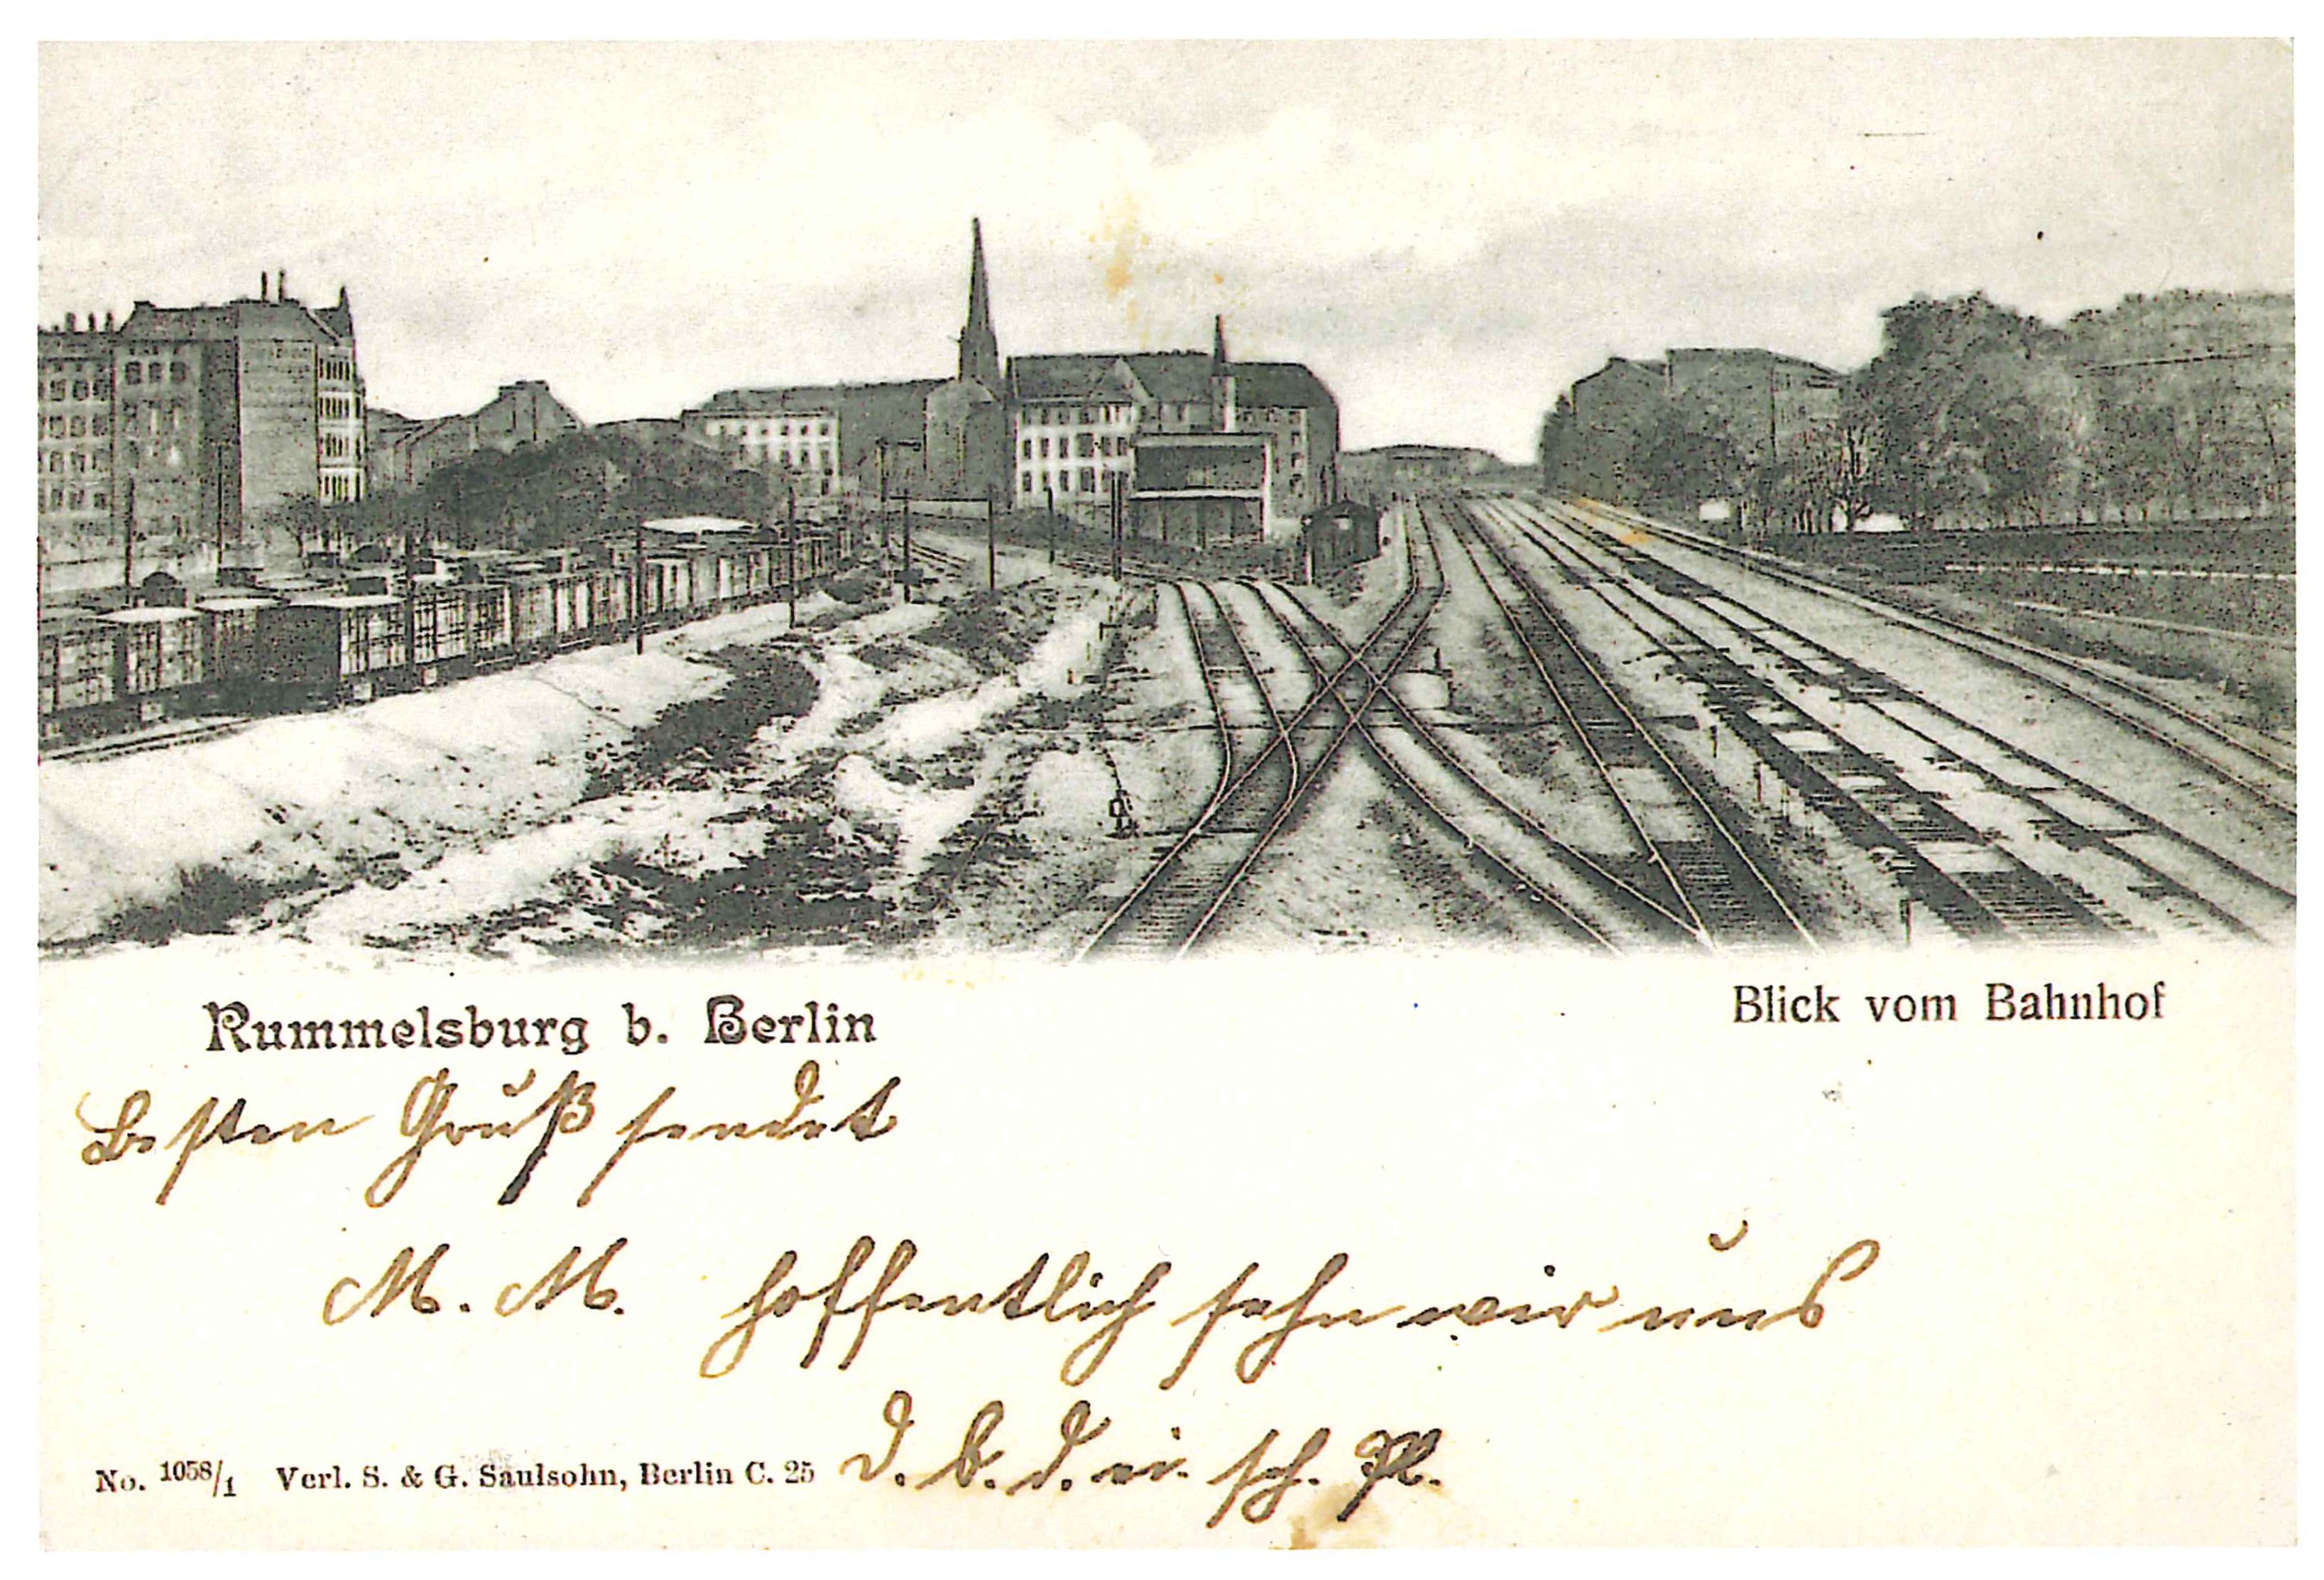 Rummelsburg b. Berlin
Blick vom Bahnhof
Besten Gruß sendet
M. M. hoffentlich sehn wir uns
d. b. d. ei. sch. Pl.
No. 1058/1 Verl. S. & G. Saulsohn, Berlin C. 25